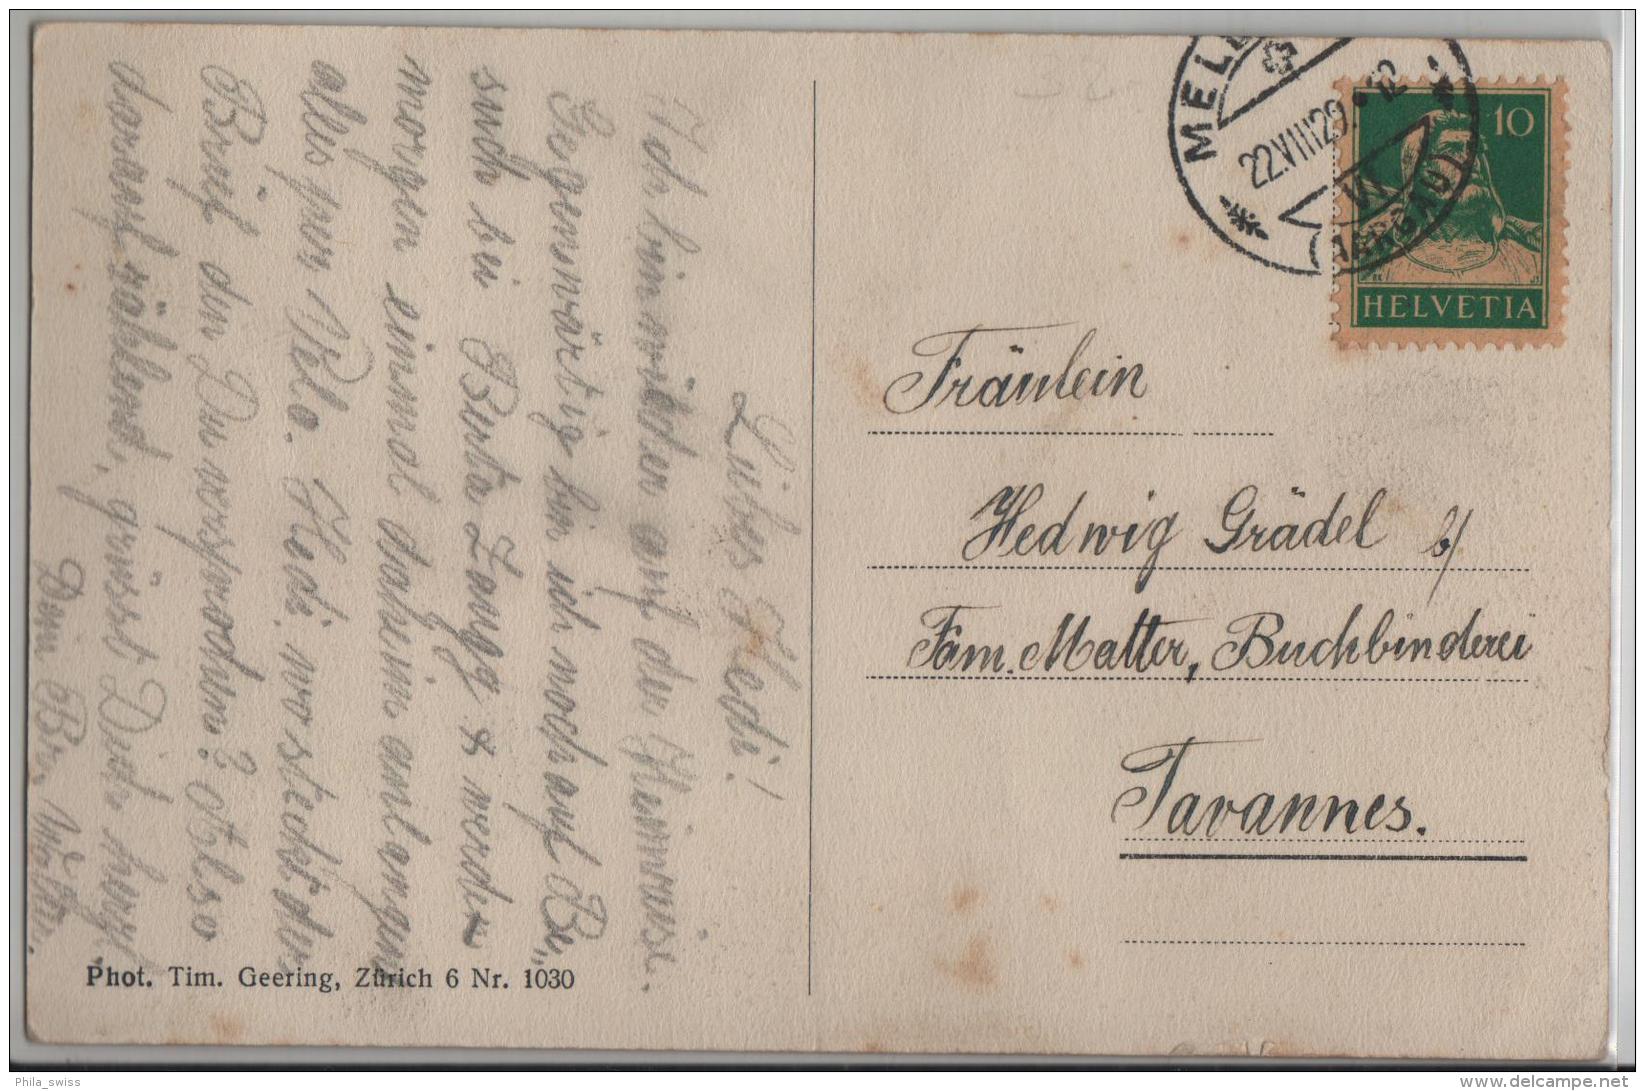 Liebes Hedi!
Ich bin wieder auf der Heimreise.
Gegenwärtig bin ich noch auf Be-
such bei Berta Zaugg & werde
morgen einmal daheim anlangen
alles per Velo. Hedi, wo steckt der
Brief den Du versprochen? Also
darauf zählend, grüsst Dich herzl.
Dein Br.
Phot. Tim. Geering, Zürich 6 Nr. 1030
22.VIII29. 12
VI
AARGAU
10
HELVETIA
Fräulein
Hedwig Grädel b/
Fam. Matter, Buchbinderei
Tavannes.
Phila_swiss
delcampe.net